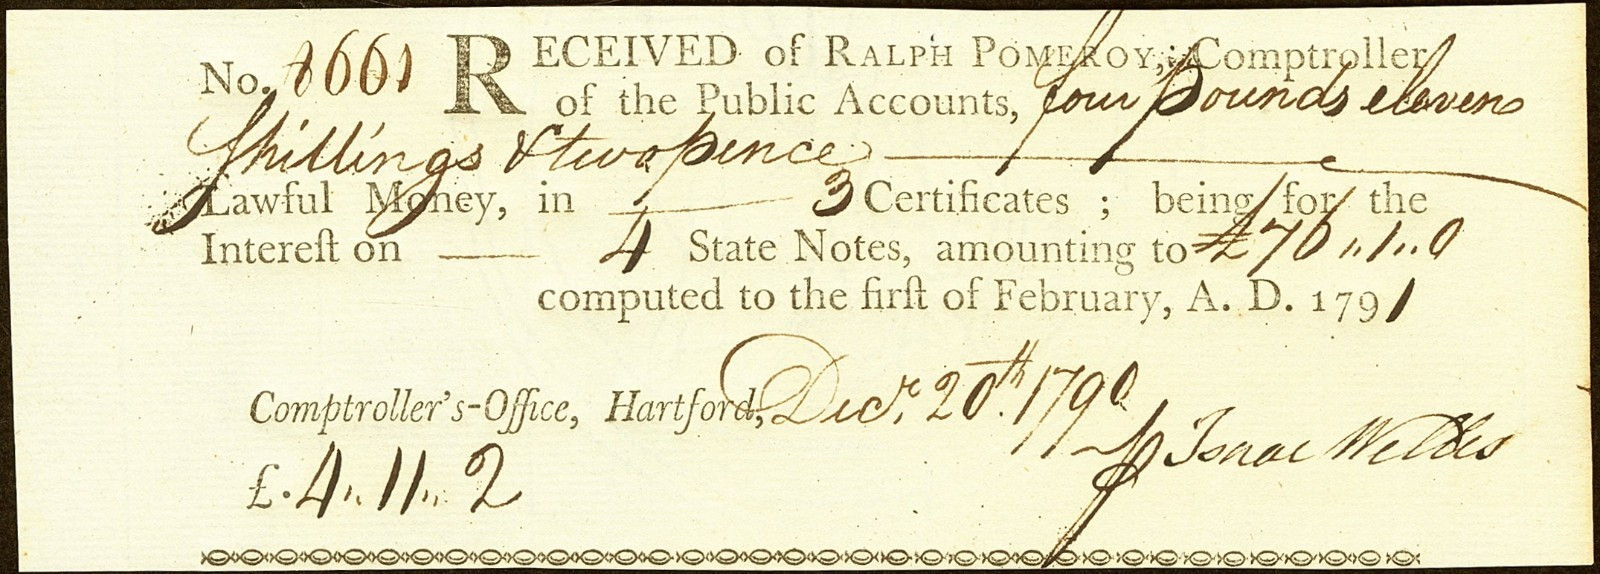 No. 8661 RECEIVED of RALPH POMEROY, Comptroller
of the Public Accounts, four pounds eleven
Shillings & two pence
Lawful Money, in 3 Certificates ; being for the
Intereſt on 4 State Notes, amounting to £76,,1,,0
computed to the firſt of February, A. D. 1791
Comptroller's-Office, Hartford, Decr. 20th. 1790
Isaac Welles
£. 4,, 11,, 2